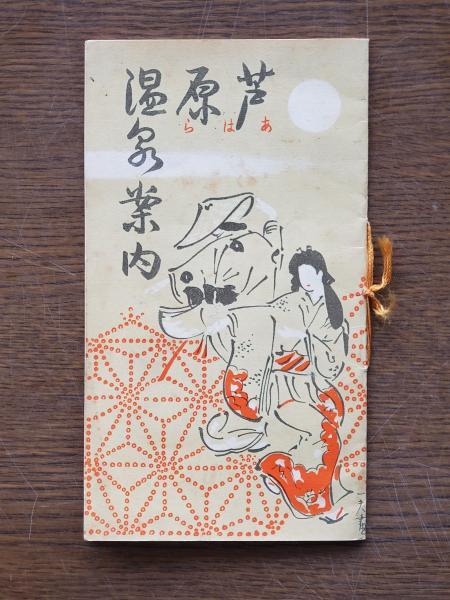 芦原
あはら
温泉案内